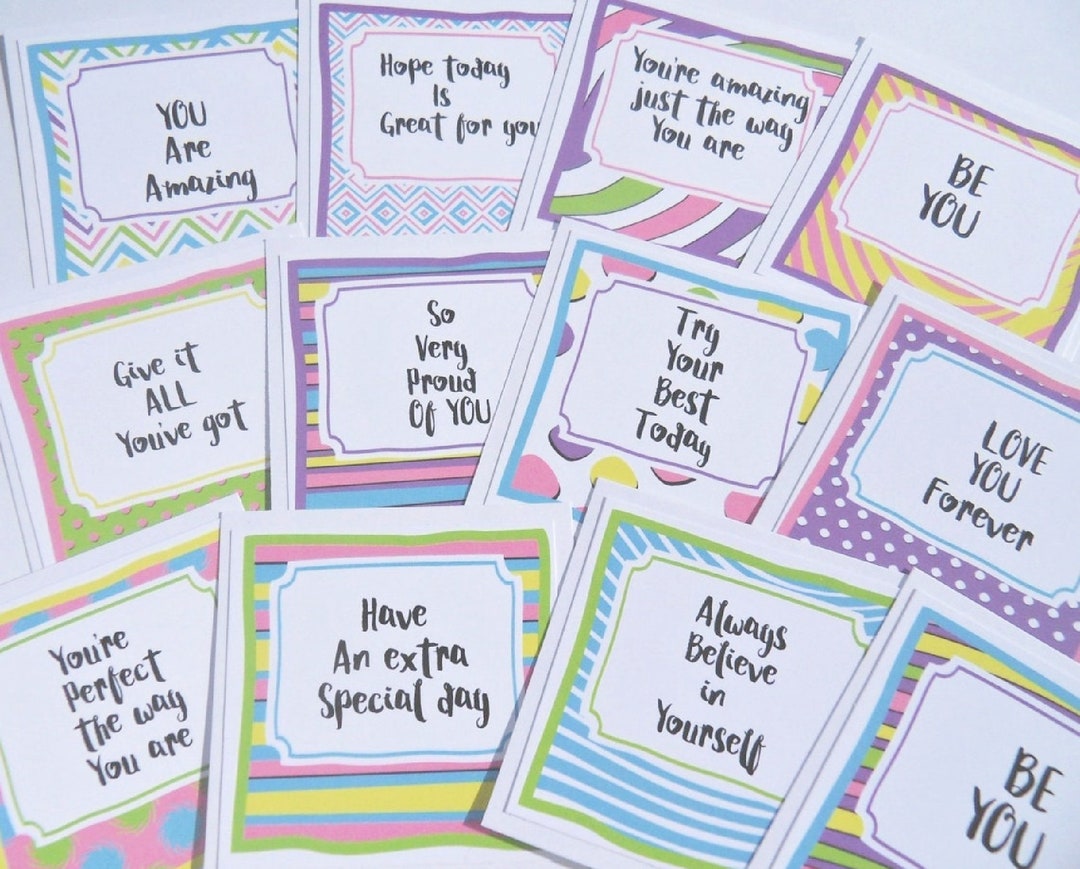 YOU
Are
Amazing
Hope today
Is
Great for you
You're amazing
just the way
You are
BE
YOU
Give it
ALL
You've got
So
Very
Proud
Of YOU
Try
Your
Best
Today
LOVE
YOU
Forever
You're
Perfect
the way
You are
Have
An extra
Special day
Always
Believe
in
Yourself
BE
YOU